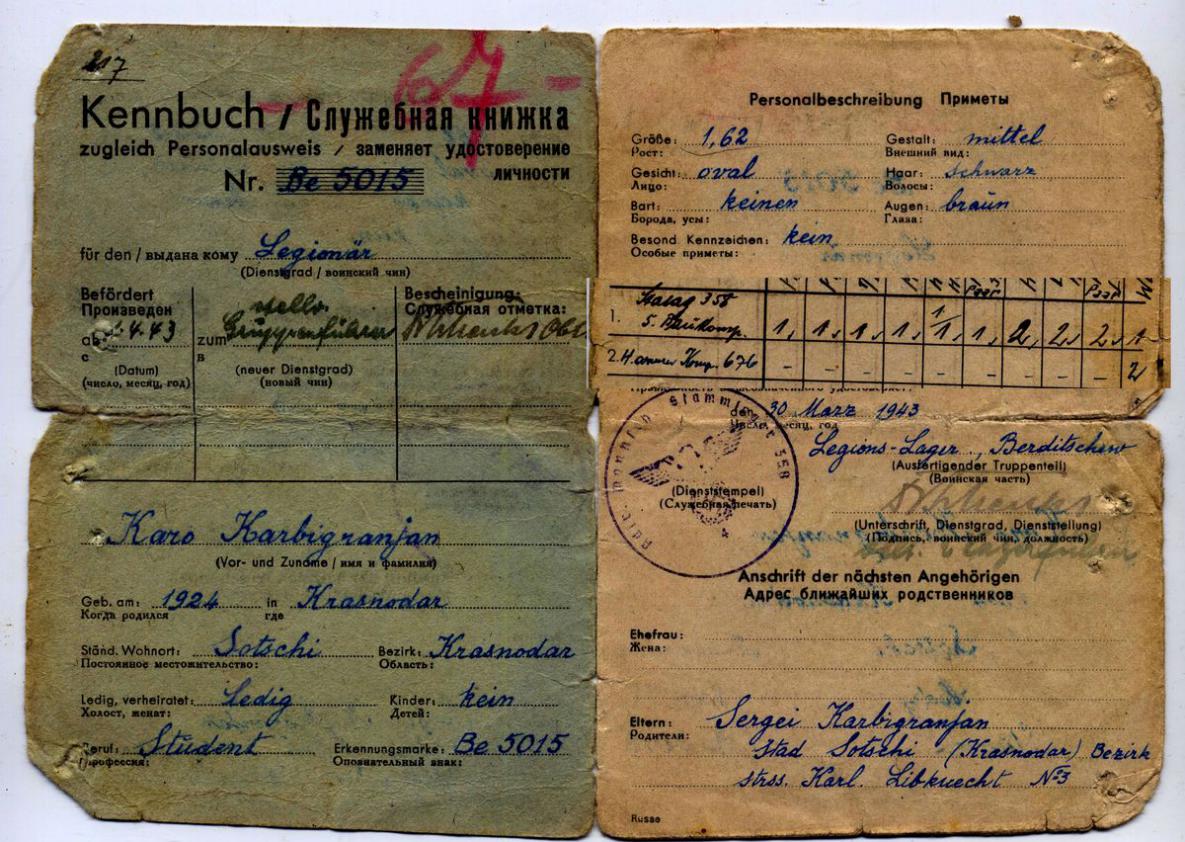 217
67 -
Kennbuch / Служебная книжка
zugleich Personalausweis / заменяет удостоверение
личности
Nr. Be 5015
für den / выдана кому Legionär
(Dienstgrad / воинский чин)
Befördert
Произведен
ab 4.43
с
(Datum)
(число, месяц, год)
stellv.
zum Gruppenführer
в
(neuer Dienstgrad)
(новый чин)
Bescheinigung:
Служебная отметка:
Karo Karbigranjan
(Vor- und Zuname / имя и фамилия)
Geb. am: 1924 in Krasnodar
Когда родился где
Ständ. Wohnort: Sotschi Bezirk: Krasnodar
Постоянное местожительство: Область:
Ledig, verheiratet: Ledig Kinder: kein
Холост, женат: Детей:
Beruf: Student Erkennungsmarke: Be 5015
Профессия: Опознательный знак:
Personalbeschreibung Приметы
Größe: 1,62 Gestalt: mittel
Рост: Внешний вид:
Gesicht: oval Haar: schwarz
Лицо: Волосы:
Bart: keinen Augen: braun
Борода, усы: Глаза:
Besond Kennzeichen: kein
Особые приметы:
1. Stalag 358
5. Baukomp. 1, 1, 1, 1, 1, 2, 2, 2, 1
2. Komp. 676 - - - - - - - - - 2
den 30 Marz 1943
Число, месяц, год
Legions-Lager, Berditschew
(Ausfertigender Truppenteil)
(Воинская часть)
Stammlager 358
(Dienststempel)
(Служебная печать)
4
(Unterschrift, Dienstgrad, Dienststellung)
(Подпись, воинский чин, должность)
Anschrift der nächsten Angehörigen
Адрес ближайших родственников
Ehefrau:
Жена:
Eltern: Sergei Karbigranjan
Родители: Stad Sotschi (Krasnodar) Bezirk
strss. Karl. Libknecht №3
Russe